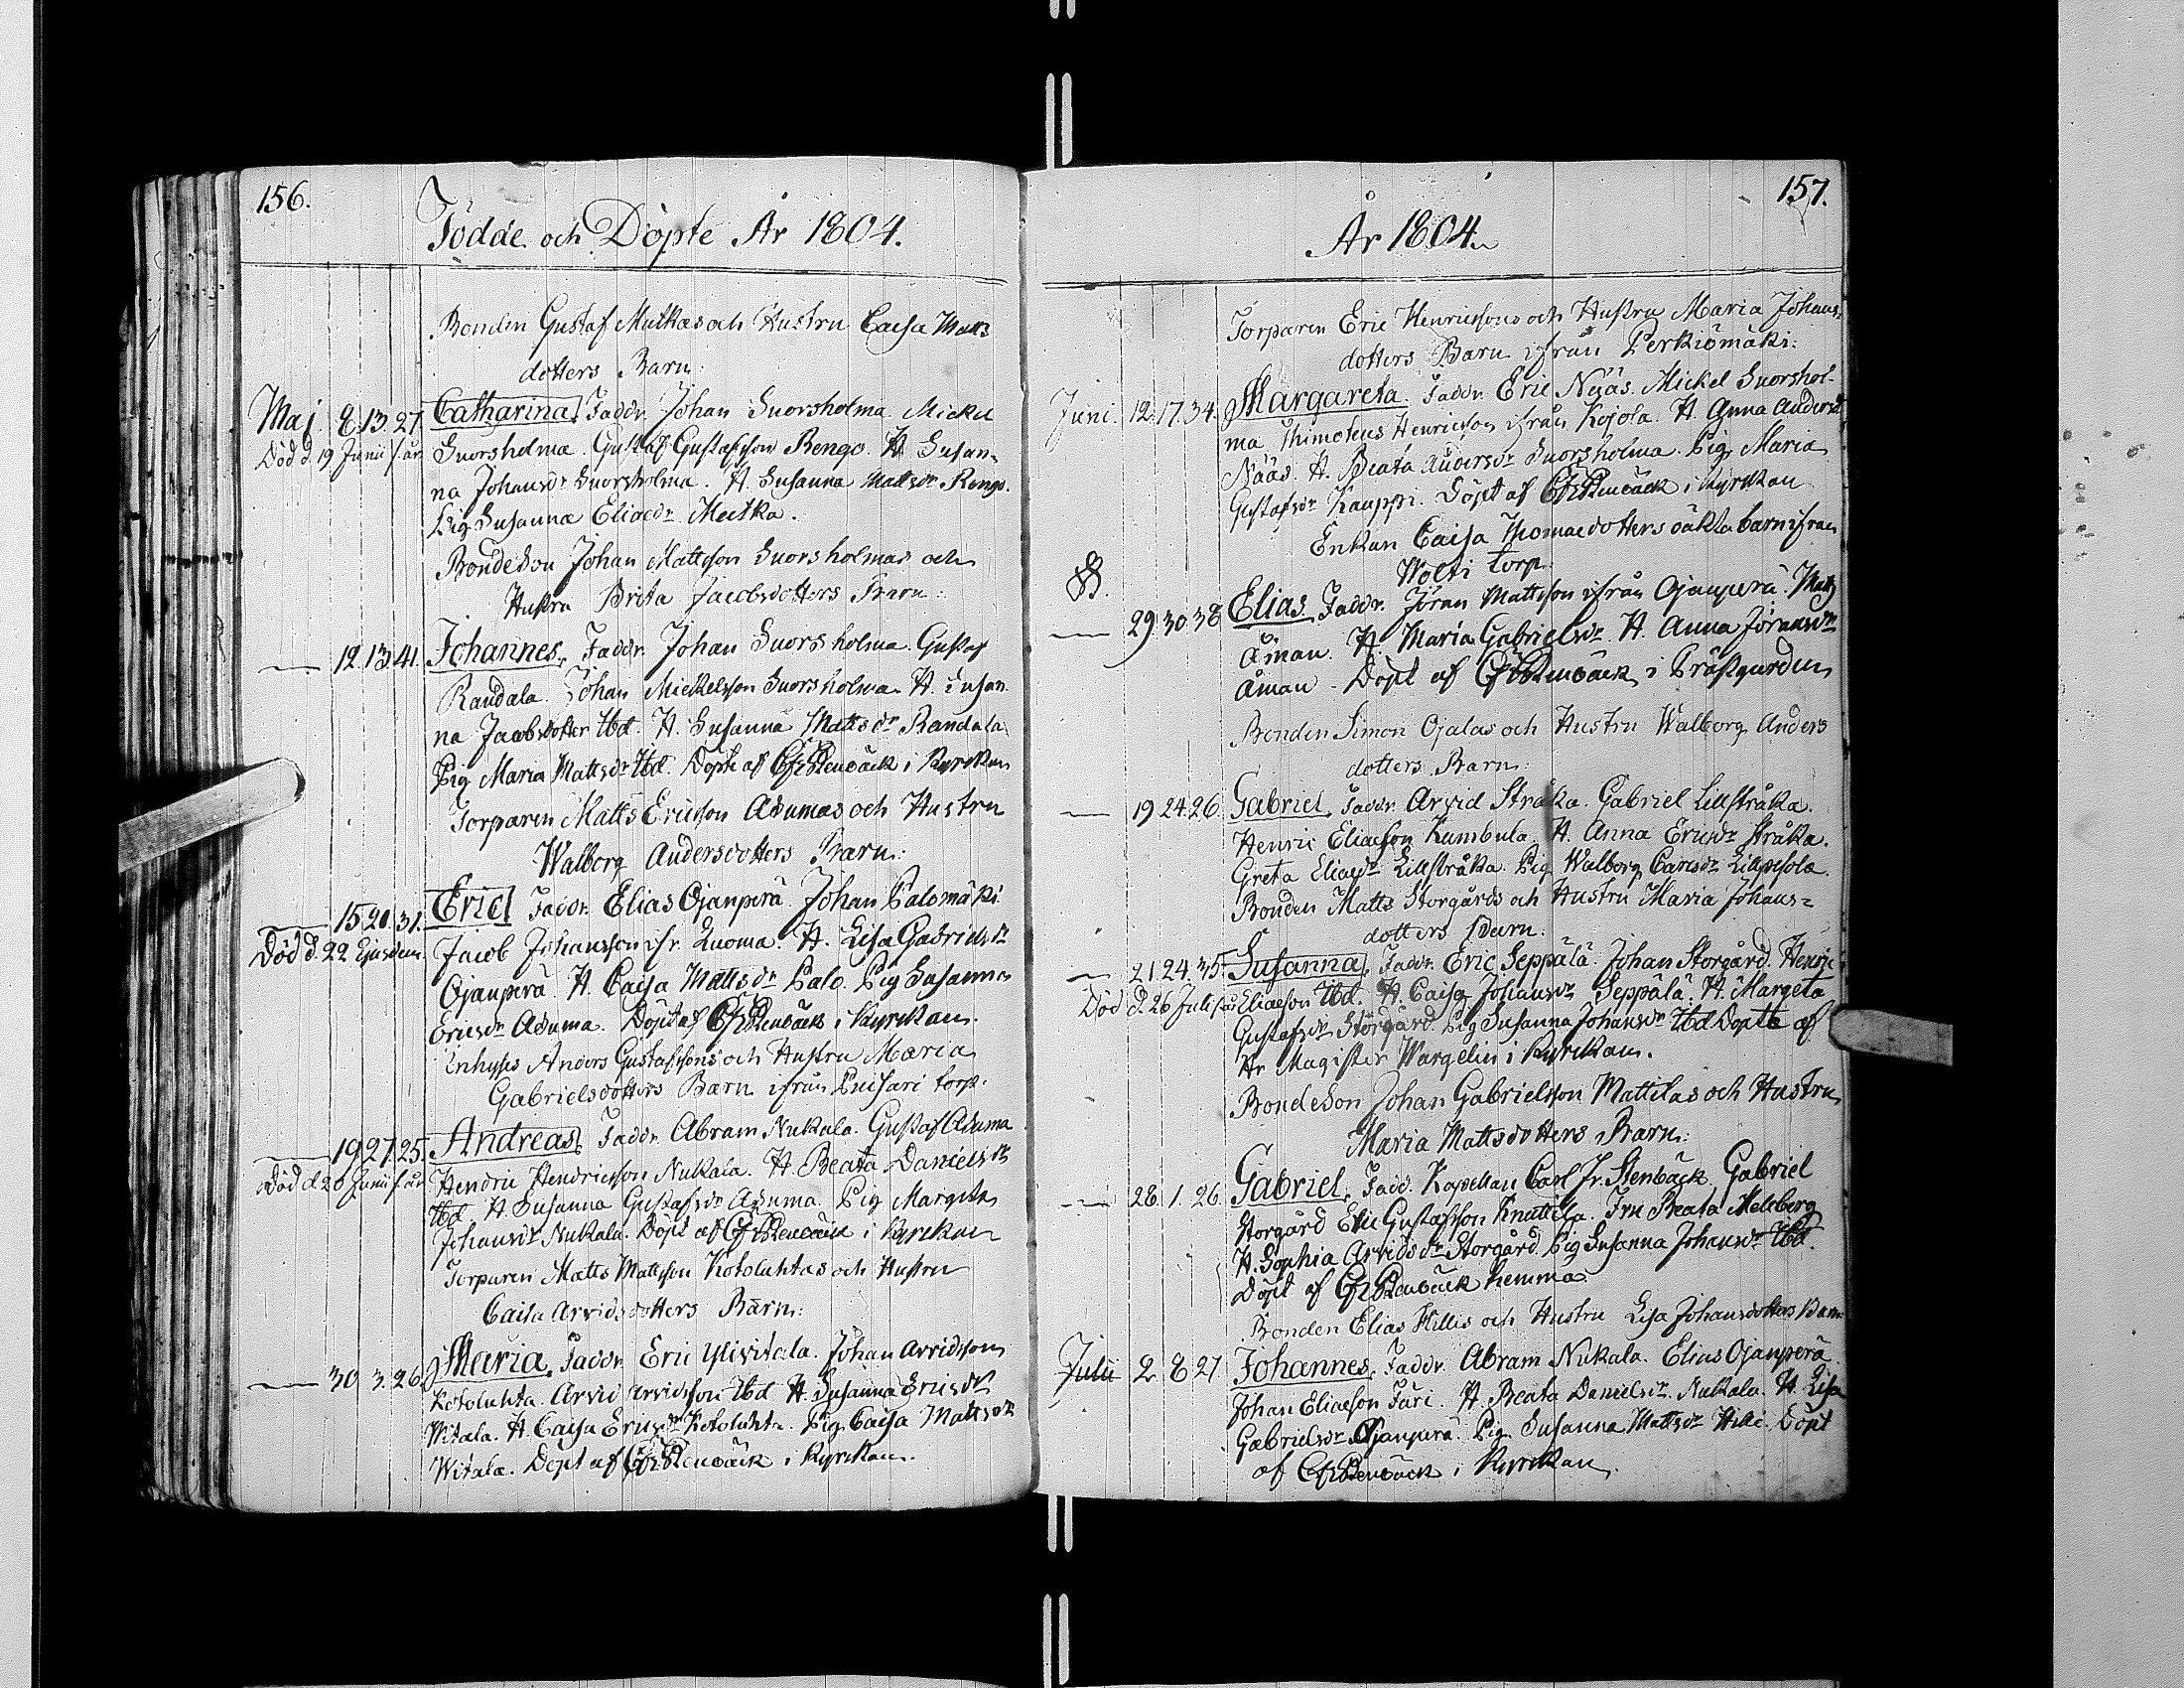 156.
Födde och Döpte År 1804.
Bonden Gustaf Mutkas och Hustru Caisa Matts
dotters Barn:
Maj. 8. 13. 27. Catharina. Faddr. Johan Snorsholma. Mickel
Död d. 19 Junii s. år. Snorsholma. Gustaf Gustafsson Rengo. H. Susan-
na Johansdr Snorsholma. H. Susanna Mattsdr Rengo.
Pig. Susanna Eliaedr Mutka.
Bondeson Johan Mattsson Snorsholmas och
Hustru Brita Jacobsdotters Barn:
12. 13. 41. Johannes. Faddr. Johan Snorsholma. Gustaf
Randala. Johan Mickelsson Snorsholma. H. Susan-
na Jacobsdotter Ibd. H. Susanna Mattsdr Randala
Pig Maria Mattsdr Ibd. Döpt af CFr Stenbäck i Kyrckan
Torparen Matts Ericsson Asumas och Hustru
Walborg Andersdotters Barn:
15. 20. 31. Eric Faddr. Elias Ojanperä. Johan Palomäki
Död d. 22 Ejusdem. Jacob Johansson ifr. Luoma. H. Lisa Gabrielsdr
Ojanperä. H. Caisa Mattsdr Palo. Pig Susanna
Ericsdr Asuma. Döpt af CFr Stenbäck i Kyrckan.
Inhyses Anders Gustafssons och Hustru Maria
Gabrielsdotters Barn ifrån torp.
19. 27. 25. Andreas. Faddr. Abram Nukala. Gustaf Asuma
Död d. 20 Junii s. år. Hendric Hendricsson Nukala. H. Beata Danielsdr
Ibd. H. Susanna Gustafsdr Asuma. Pig Margeta
Johansdr Nukala. Döpt af CFr Stenbäck i Kyrckan
Torparen Matts Mattsson Kotoluhtas och Hustru
Caisa Arvidsdotters Barn:
30. 3. 26. Maria. Faddr. Eric Yliwitala. Johan Arvidsson
Kotoluhta. Arvid Arvidsson Ibd. H. Susanna Ericsdr
Witala. H. Caisa Ericsdr Kotoluhta. Pig Caisa Mattsdr
Witala. Döpt af CFr Stenbäck i Kyrckan.
157.
År 1804.
Torparen Eric Henricssons och Hustru Maria Johans-
dotters Barn ifrån Perkiömäki:
Junii. 12. 17. 34. Margareta. Faddr. Eric Nääs. Mickel Snorshol-
ma Thimoteus Henricsson ifrån Kojola. H. Anna Andersdr
Nääs. H. Beata Andersdr Snorsholma. Pig Maria
Gustafsdr Kauppi. Döpt af CFr Stenbäck i Kyrckan
Enkan Caisa Thomaedotters oäkta barn ifrån
Wolti torp.
29. 30. 38 Elias. Faddr. Jöran Mattsson ifrån Ojanperä. Matts
Åman. H. Maria Gabrielsdr H. Anna Jöransdr
Åman. Döpt af CFr Stenbäck i Prästgården
Bonden Simon Ojalas och Hustru Walborg Anders
dotters Barn:
19. 24. 26. Gabriel. Faddr. Arvid Stråka. Gabriel Lillstråka.
Henric Eliaeson Kumbula. H. Anna Ericsdr Stråka.
Greta Eliaedr Lillstråka. Pig Walborg Carlsdr
Bonden Matts Storgårds och Hustru Maria Johans-
dotters Barn:
21. 24. 35. Susanna. Faddr. Eric Seppälä. Johan Storgård. Henric
Död d. 26 Julii s. år Eliaeson Ibd. H. Caisa Johansdr Seppälä. H. Margeta
Gustafsdr Storgård. Pig Susanna Johansdr Ibd Döpte af
Hr Magister Wargelin i Kyrckan.
Bondeson Johan Gabrielsson Mattilas och Hustru
Maria Mattsdotters Barn:
28. 1. 26. Gabriel. Fadd. Kapellan Carl Fr. Stenbäck. Gabriel
Storgård Eric Gustafsson Knuttila. Fru Beata Melberg
H. Sophia Arvidsdr Storgård Pig Susanna Johansdr Ibd.
Döpt af CFr Stenbäck hemma.
Bonden Elias Hillis och Hustru Lisa Johansdotters Barn:
Julii 2. 8. 27. Johannes. Faddr. Abram Nukala. Elias Ojanperä
Johan Eliaeson Färi. H. Beata Danielsdr Nukala. H. Lisa
Gabrielsdr Ojanperä. Pig Susanna Mattsdr Hilli. Döpt
af CFr Stenbäck i Kyrckan.